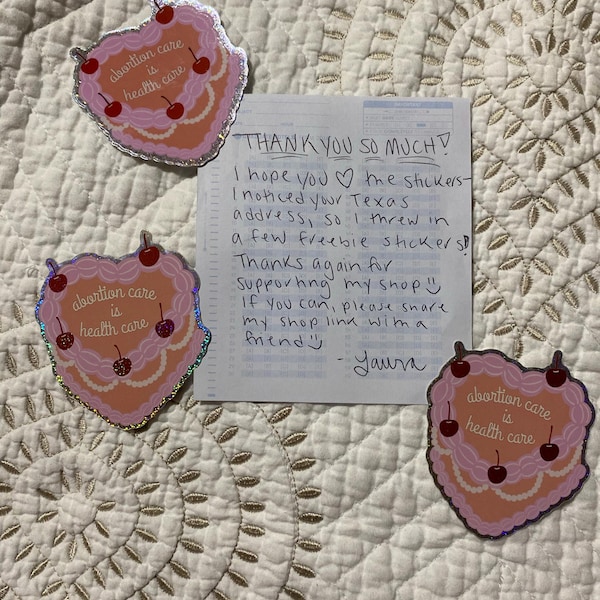 abortion care
is
health care
THANK YOU SO MUCH!
I hope you ♡ the stickers-
I noticed your Texas
address, so I threw in
a few freebie stickers!
Thanks again for
supporting my shop☺
If you can, please share
my shop link with a
friend☺
- Laura
abortion care
is
health care
abortion care
is
health care